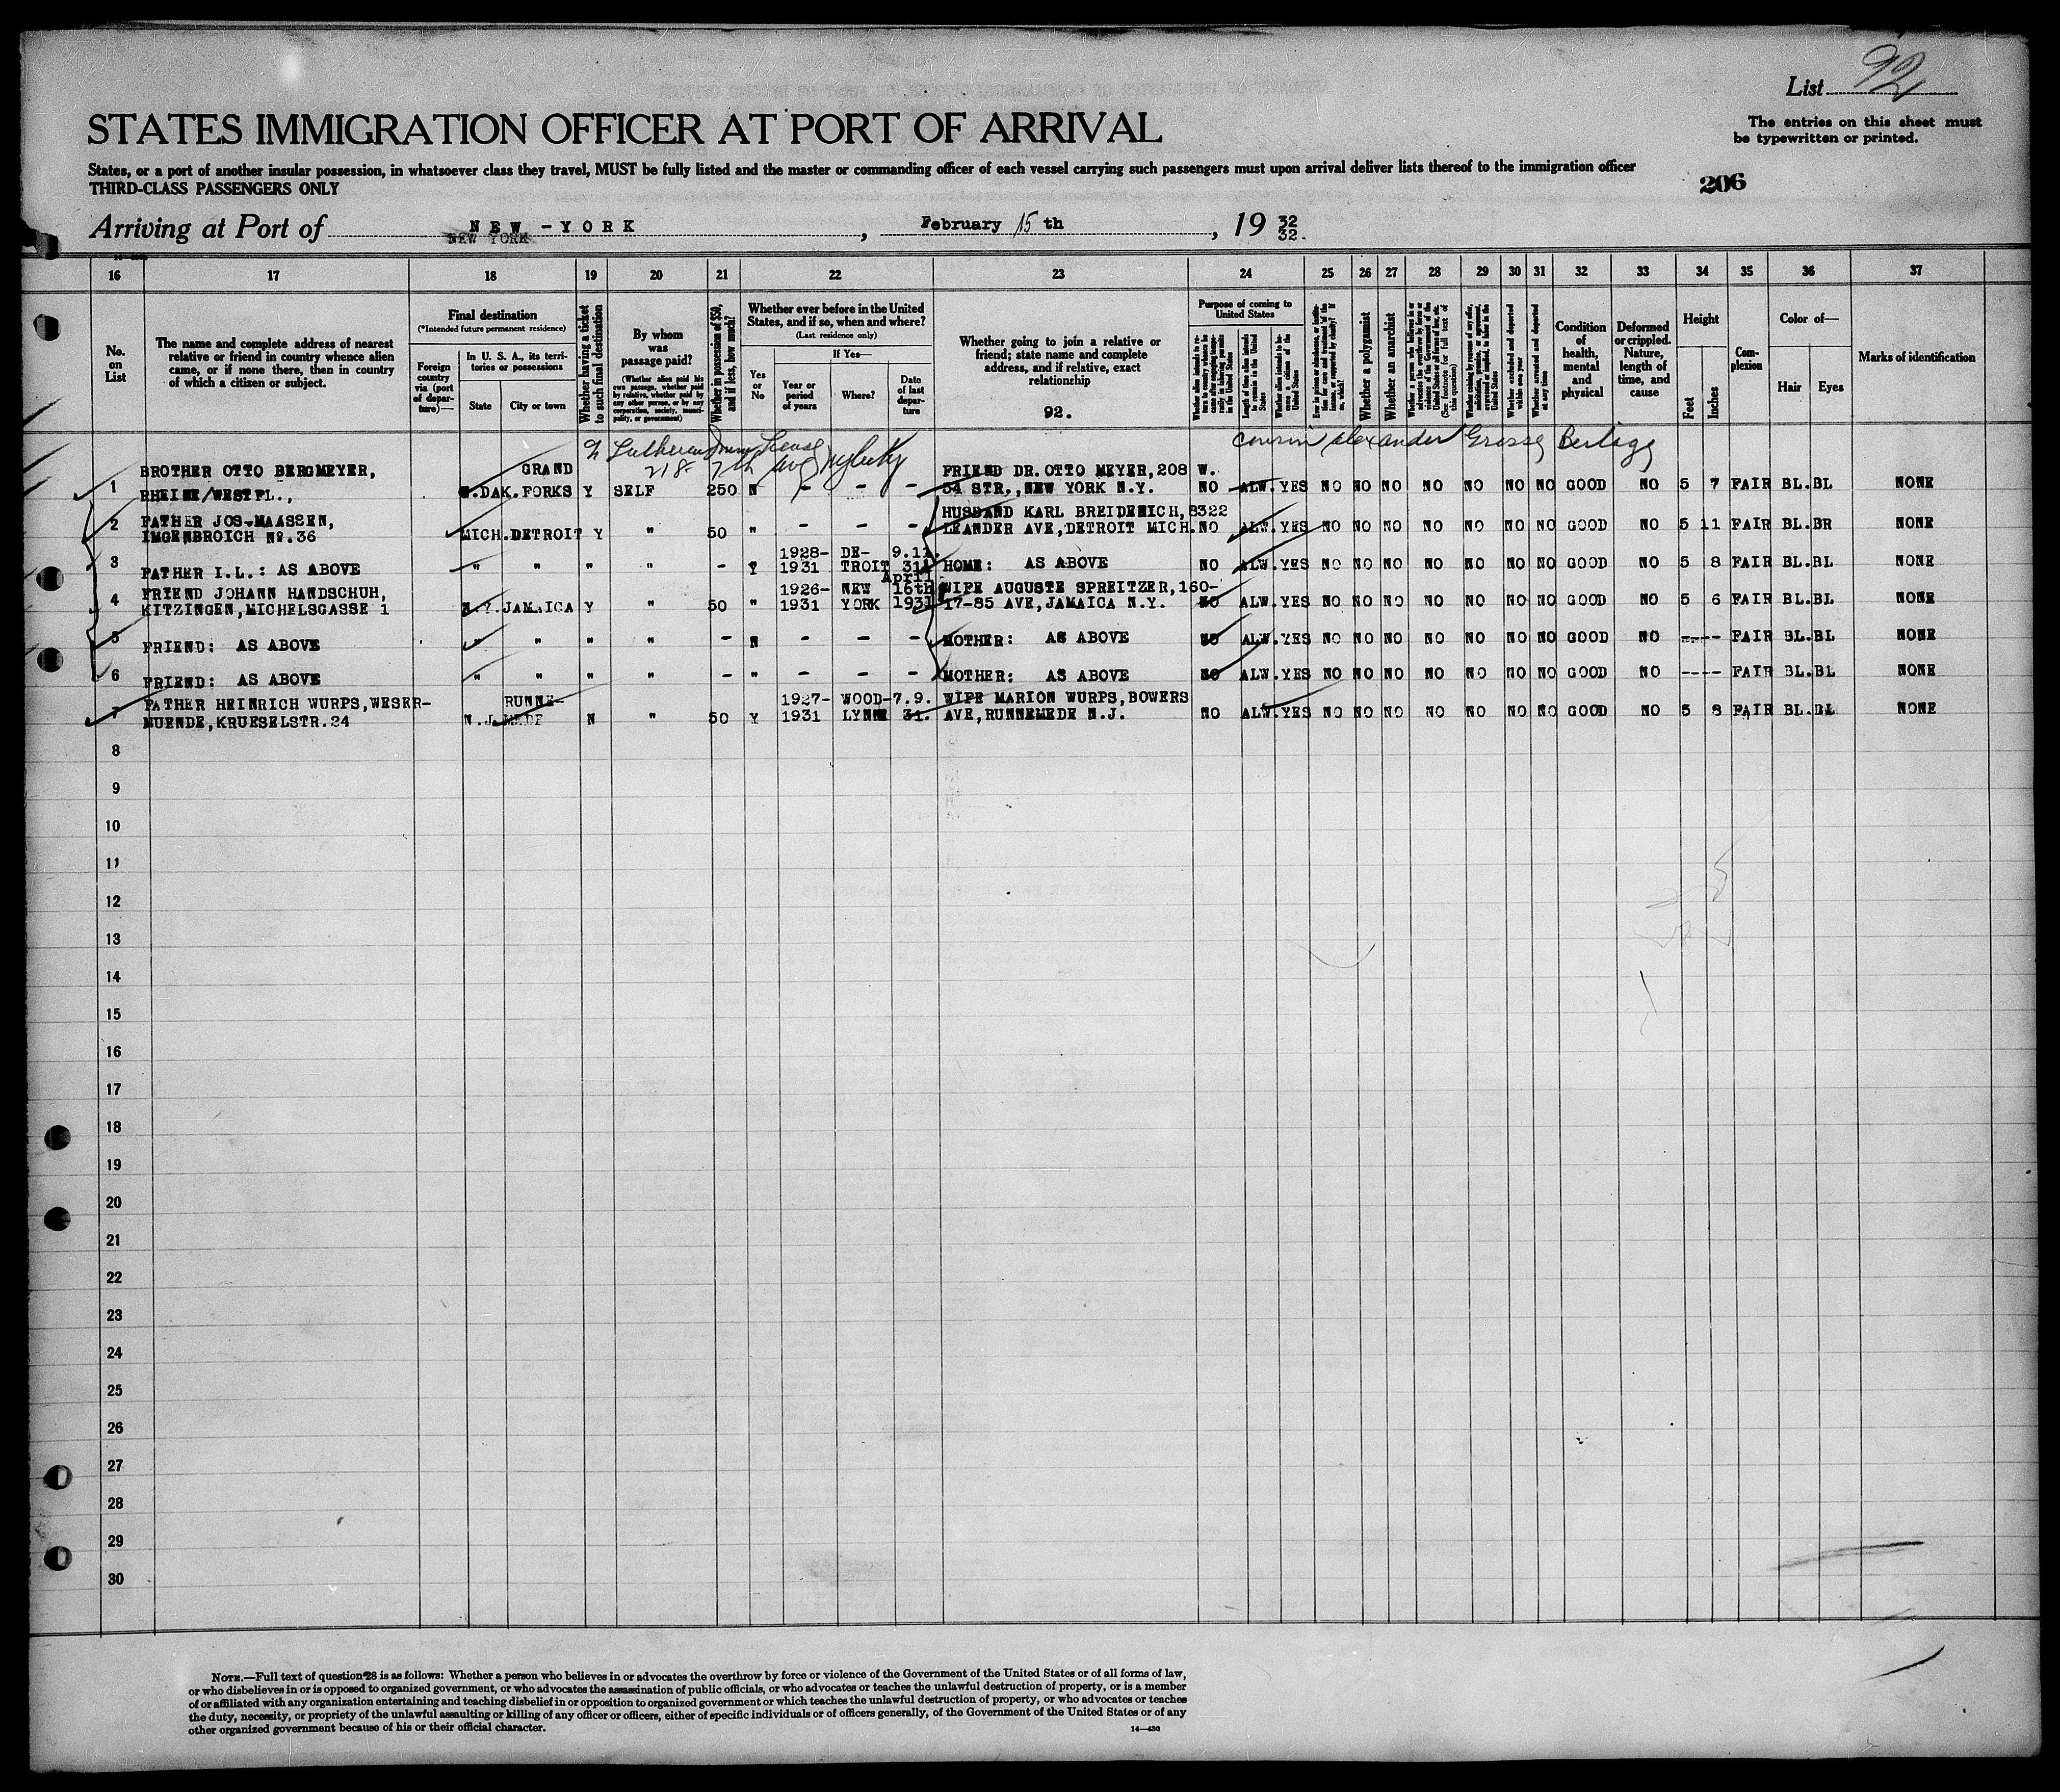 List 92
STATES IMMIGRATION OFFICER AT PORT OF ARRIVAL
The entries on this sheet must
be typewritten or printed.
States, or a port of another insular possession, in whatsoever class they travel, MUST be fully listed and the master or commanding officer of each vessel carrying such passengers must upon arrival deliver lists thereof to the immigration officer
THIRD-CLASS PASSENGERS ONLY
206
Arriving at Port of NEW-YORK, February 15th, 19 32
NEW YORK 32.
16 17 18 19 20 21 22 23 24 25 26 27 28 29 30 31 32 33 34 35 36 37
No. on List
The name and complete address of nearest relative or friend in country whence alien came, or if none there, then in country of which a citizen or subject.
Final destination
(*Intended future permanent residence)
Foreign country via (port of departure)—
In U. S. A., its territories or possessions
State
City or town
Whether having a ticket to such final destination
By whom was passage paid?
(Whether alien paid his own passage, whether paid by relative, whether paid by any other person, or by any corporation, society, municipality, or government)
Whether in possession of $50, and if less, how much?
Whether ever before in the United States, and if so, when and where?
(Last residence only)
Yes or No
If Yes—
Year or period of years
Where?
Date of last departure
Whether going to join a relative or friend; state name and complete address, and if relative, exact relationship
92.
Purpose of coming to United States
Length of time alien intends to remain in the United States
Whether alien intends to become a citizen of the United States
Whether a polygamist
Whether an anarchist
Whether excluded and deported within one year
Whether arrested and deported at any time
Condition of health, mental and physical
Deformed or crippled. Nature, length of time, and cause
Height
Feet
Inches
Complexion
Color of—
Hair
Eyes
Marks of identification
218 7th Av
cousin Alexander Grosse
1 BROTHER OTTO BERGMEYER, GRAND FRIEND DR. OTTO MEYER,208 W.
RHEINE/WESTFL., N.DAK.FORKS Y SELF 250 N - - - 54 STR.,NEW YORK N.Y. NO ALW.YES NO NO NO NO NO NO NO GOOD NO 5 7 FAIR BL.BL NONE
2 FATHER JOS-MAASSEN, HUSBAND KARL BREIDENICH,8322
IMGENBROICH No.36 MICH.DETROIT Y " 50 " - - - LEANDER AVE,DETROIT MICH. NO ALW.YES NO NO NO NO NO NO NO GOOD NO 5 11 FAIR BL.BR NONE
3 1928- DE- 9.11.
FATHER I.L.: AS ABOVE " " " " - Y 1931 TROIT 31 HOME: AS ABOVE NO ALW.YES NO NO NO NO NO NO NO GOOD NO 5 8 FAIR BL.BL NONE
April
4 FRIEND JOHANN HANDSCHUH, 1926- NEW 16th WIFE AUGUSTE SPREITZER,160-
KITZINGEN,MICHELSGASSE 1 N.Y.JAMAICA Y " 50 " 1931 YORK 1931 17-85 AVE,JAMAICA N.Y. NO ALW.YES NO NO NO NO NO NO NO GOOD NO 5 6 FAIR BL.BL NONE
5 FRIEND: AS ABOVE " " " " - N - - - MOTHER: AS ABOVE NO ALW.YES NO NO NO NO NO NO NO GOOD NO ---- FAIR BL.BL NONE
6 FRIEND: AS ABOVE " " " " - " - - - MOTHER: AS ABOVE NO ALW.YES NO NO NO NO NO NO NO GOOD NO ---- FAIR BL.BL NONE
7 FATHER HEINRICH WURPS,WESER- RUNNE- 1927- WOOD- 7.9. WIFE MARION WURPS,BOWERS
MUENDE,KRUESELSTR.24 N.J.MEDE N " 50 Y 1931 LYNNE 31. AVE,RUNNEMEDE N.J. NO ALW.YES NO NO NO NO NO NO NO GOOD NO 5 8 FAIR BL.BL NONE
8
9
10
11
12
13
14
15
16
17
18
19
20
21
22
23
24
25
26
27
28
29
30
NOTE.—Full text of question 28 is as follows: Whether a person who believes in or advocates the overthrow by force or violence of the Government of the United States or of all forms of law,
or who disbelieves in or is opposed to organized government, or who advocates the assassination of public officials, or who advocates or teaches the unlawful destruction of property, or is a member
of or affiliated with any organization entertaining and teaching disbelief in or opposition to organized government or which teaches the unlawful destruction of property, or who advocates or teaches
the duty, necessity, or propriety of the unlawful assaulting or killing of any officer or officers, either of specific individuals or of officers generally, of the Government of the United States or of any
other organized government because of his or their official character.
14—430